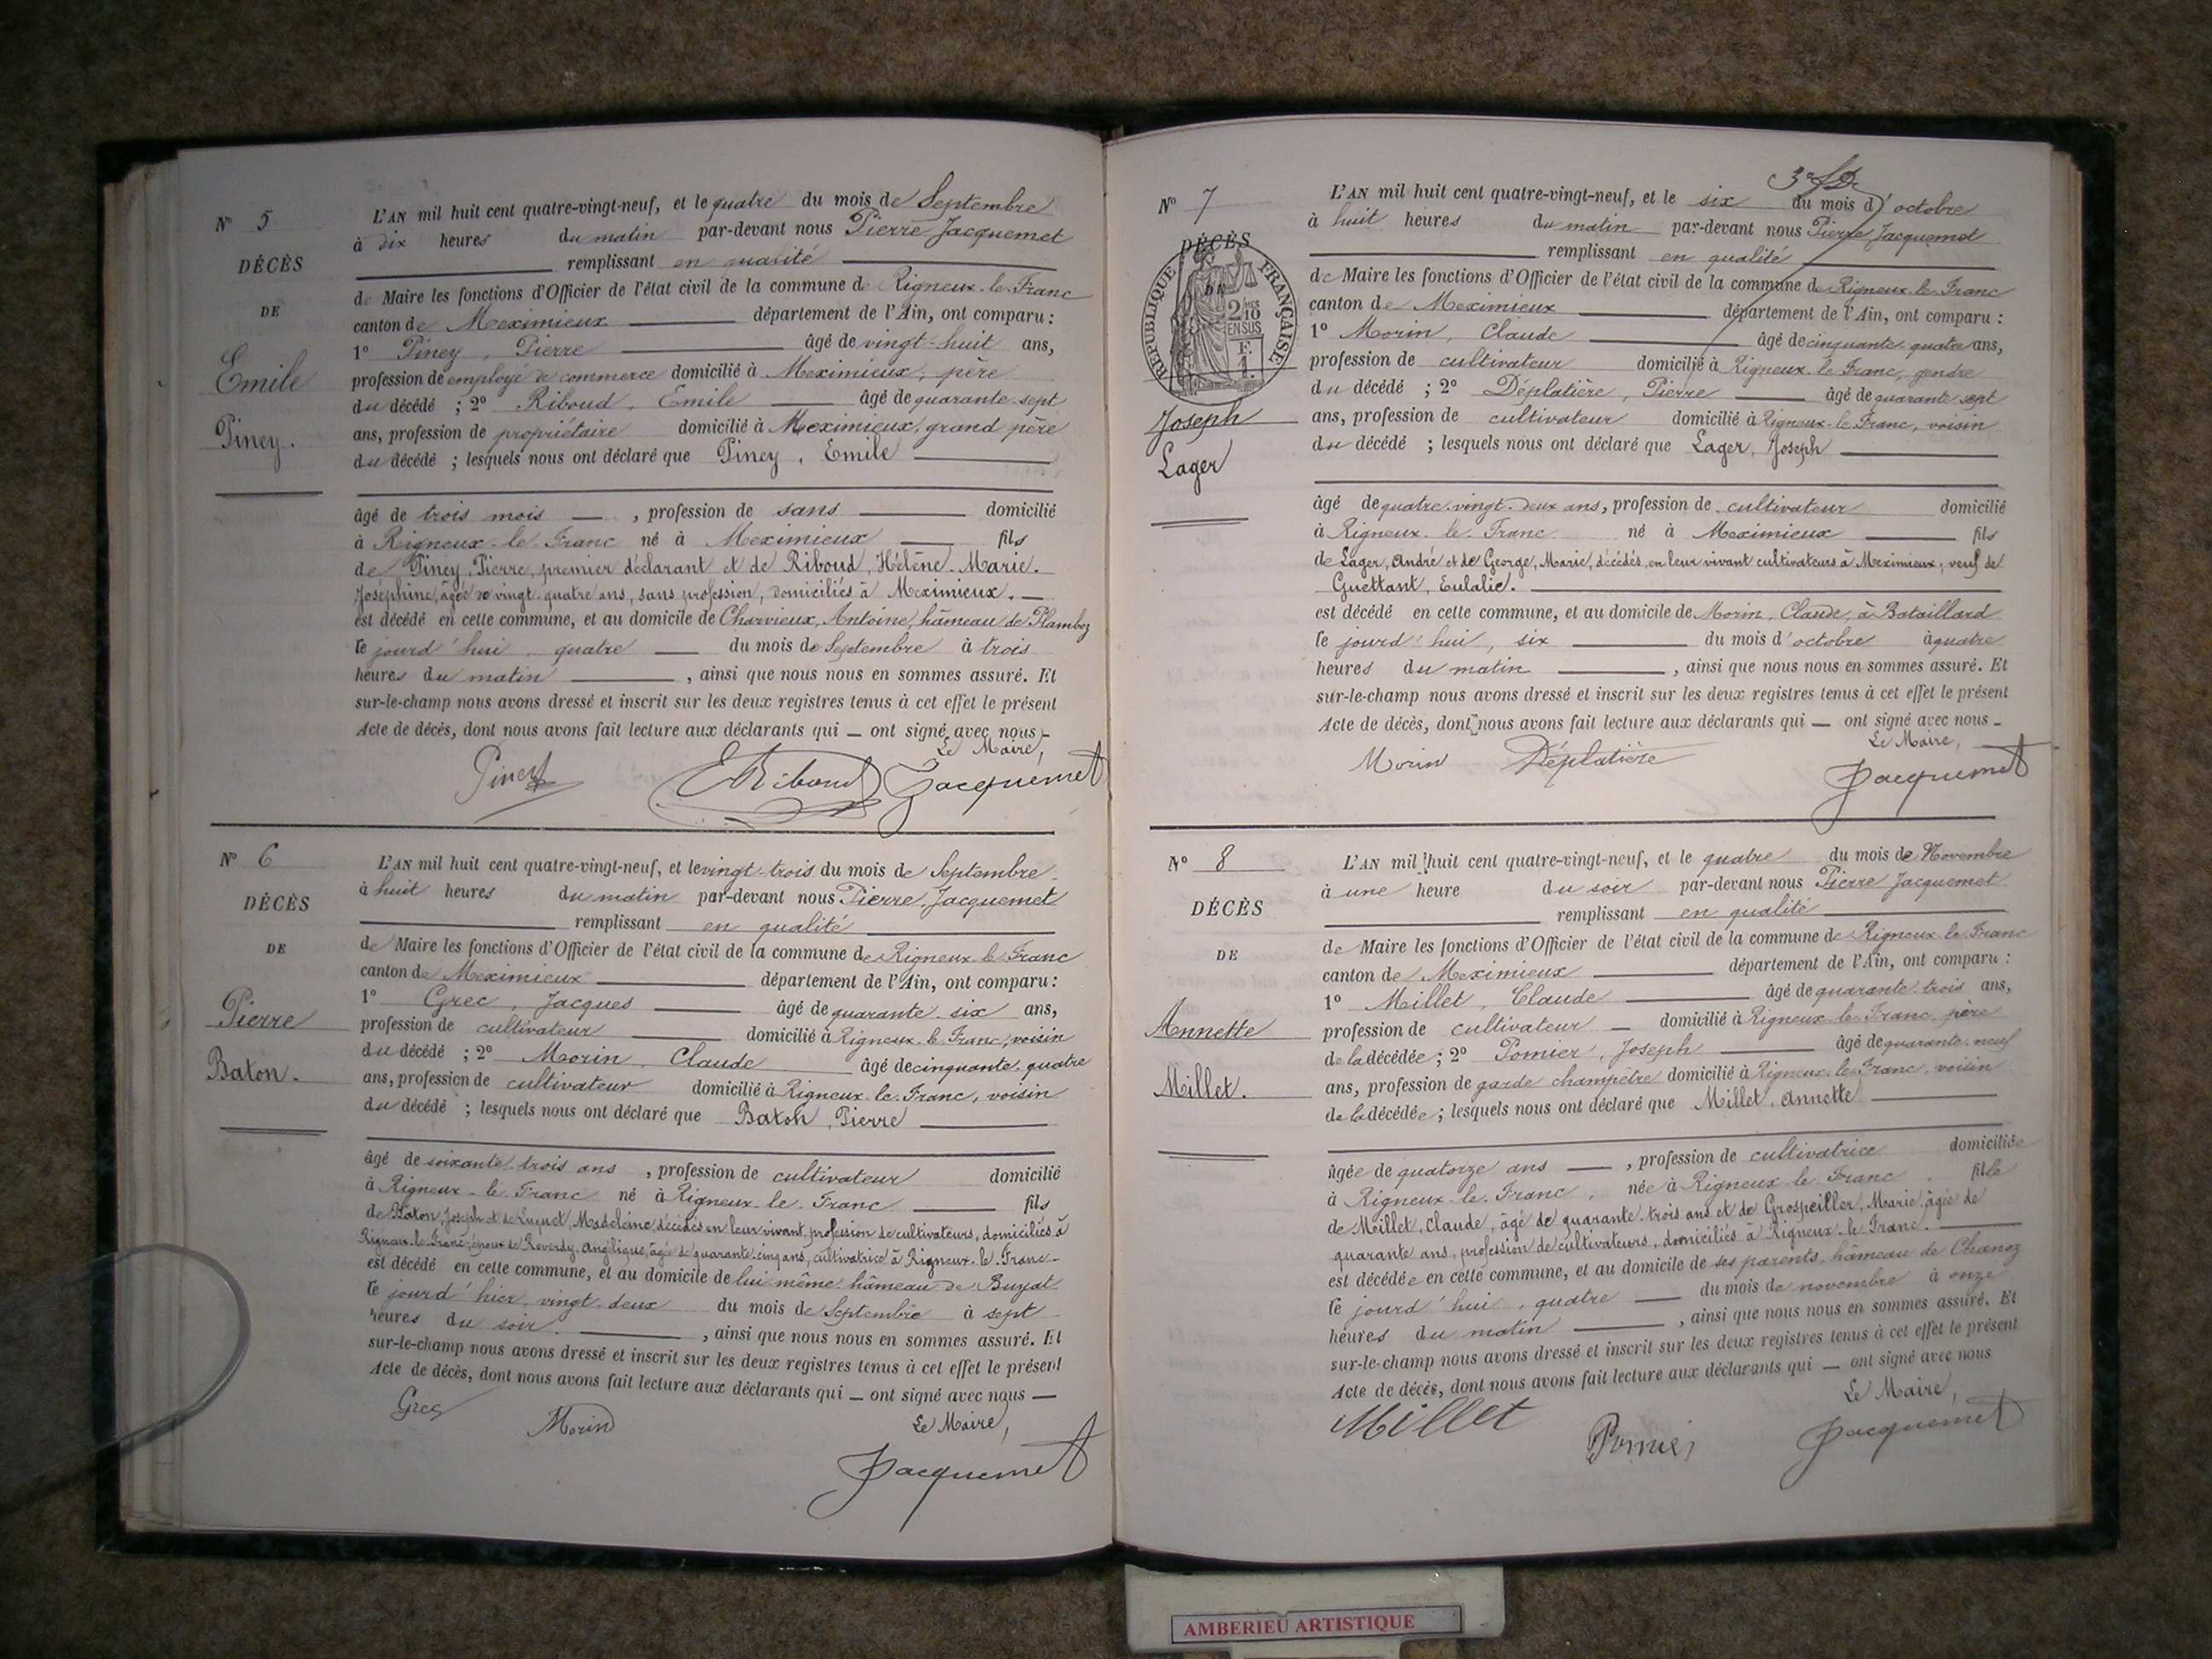 N° 5
DÉCÈS
DE
Emile
Piney.
L'AN mil huit cent quatre-vingt-neuf, et le quatre du mois de Septembre
à dix heures du matin par-devant nous Pierre Jacquemet
remplissant en qualité
de Maire les fonctions d'Officier de l'état civil de la commune de Rigneux-le-Franc
canton de Meximieux département de l'Ain, ont comparu :
1° Piney, Pierre âgé de vingt-huit ans,
profession de employé de commerce domicilié à Meximieux, père
du décédé ; 2° Riboud, Emile âgé de quarante-sept
ans, profession de propriétaire domicilié à Meximieux, grand père
du décédé ; lesquels nous ont déclaré que Piney, Emile
âgé de trois mois , profession de sans domicilié
à Rigneux-le-Franc né à Meximieux fils
de Piney, Pierre, premier déclarant et de Riboud, Hélène-Marie-
Joséphine, âgée de vingt-quatre ans, sans profession, domiciliés à Meximieux.
est décédé en cette commune, et au domicile de Charvieux, Antoine, hâmeau de Plamboz
le jourd'hui, quatre du mois de Septembre à trois
heures du matin , ainsi que nous nous en sommes assuré. Et
sur-le-champ nous avons dressé et inscrit sur les deux registres tenus à cet effet le présent
Acte de décès, dont nous avons fait lecture aux déclarants qui — ont signé avec nous.
Le Maire,
Piney ERiboud Jacquemet
N° 6
DÉCÈS
DE
Pierre
Baton.
L'AN mil huit cent quatre-vingt-neuf, et le vingt-trois du mois de Septembre
à huit heures du matin par-devant nous Pierre Jacquemet
remplissant en qualité
de Maire les fonctions d'Officier de l'état civil de la commune de Rigneux-le-Franc
canton de Meximieux département de l'Ain, ont comparu :
1° Grec, Jacques âgé de quarante-six ans,
profession de cultivateur domicilié à Rigneux-le-Franc, voisin
du décédé ; 2° Morin, Claude âgé de cinquante-quatre
ans, profession de cultivateur domicilié à Rigneux-le-Franc, voisin
du décédé ; lesquels nous ont déclaré que Baton, Pierre
âgé de soixante-trois ans , profession de cultivateur domicilié
à Rigneux-le-Franc né à Rigneux-le-Franc fils
de Baton, Joseph et de Luquet, Madeleine, décédés en leur vivant, profession de cultivateurs, domiciliés à
Rigneux-le-Franc; époux de Reverdy, Angélique, âgée de quarante-cinq ans, cultivatrice à Rigneux-le-Franc
est décédé en cette commune, et au domicile de lui-même, hâmeau de Buyat
le jourd'hier, vingt-deux du mois de Septembre à sept
heures du soir , ainsi que nous nous en sommes assuré. Et
sur-le-champ nous avons dressé et inscrit sur les deux registres tenus à cet effet le présent
Acte de décès, dont nous avons fait lecture aux déclarants qui — ont signé avec nous —
Grec Morin Le Maire,
Jacquemet
N° 7
DÉCÈS
DE
RÉPUBLIQUE FRANÇAISE
2/10 EN SUS
Joseph
Lager
L'AN mil huit cent quatre-vingt-neuf, et le six du mois d'octobre
à huit heures du matin par-devant nous Pierre Jacquemet
remplissant en qualité
de Maire les fonctions d'Officier de l'état civil de la commune de Rigneux-le-Franc
canton de Meximieux département de l'Ain, ont comparu :
1° Morin, Claude âgé de cinquante-quatre ans,
profession de cultivateur domicilié à Rigneux-le-Franc, gendre
du décédé ; 2° Déplatière, Pierre âgé de quarante-sept
ans, profession de cultivateur domicilié à Rigneux-le-Franc, voisin
du décédé ; lesquels nous ont déclaré que Lager, Joseph
âgé de quatre-vingt-deux ans, profession de cultivateur domicilié
à Rigneux-le-Franc né à Meximieux fils
de Lager, André et de George, Marie, décédés, en leur vivant cultivateurs à Meximieux; veuf de
Guettant, Eulalie.
est décédé en cette commune, et au domicile de Morin, Claude, à Bataillard
le jourd'hui, six du mois d'octobre à quatre
heures du matin , ainsi que nous nous en sommes assuré. Et
sur-le-champ nous avons dressé et inscrit sur les deux registres tenus à cet effet le présent
Acte de décès, dont nous avons fait lecture aux déclarants qui — ont signé avec nous —
Le Maire,
Morin Déplatière Jacquemet
N° 8
DÉCÈS
DE
Annette
Millet.
L'AN mil huit cent quatre-vingt-neuf, et le quatre du mois de Novembre
à une heure du soir par-devant nous Pierre Jacquemet
remplissant en qualité
de Maire les fonctions d'Officier de l'état civil de la commune de Rigneux-le-Franc
canton de Meximieux département de l'Ain, ont comparu :
1° Millet, Claude âgé de quarante-trois ans,
profession de cultivateur domicilié à Rigneux-le-Franc, père
de la décédée ; 2° Pomier, Joseph âgé de quarante-neuf
ans, profession de garde champêtre domicilié à Rigneux-le-Franc, voisin
de la décédée ; lesquels nous ont déclaré que Millet, Annette
âgée de quatorze ans , profession de cultivatrice domiciliée
à Rigneux-le-Franc, née à Rigneux-le-Franc, fille
de Millet, Claude, âgé de quarante-trois ans et de Grospeiller, Marie, âgée de
quarante ans, profession de cultivateurs, domiciliés à Rigneux-le-Franc.
est décédée en cette commune, et au domicile de ses parents, hâmeau de Chanoz
le jourd'hui, quatre du mois de novembre à onze
heures du matin , ainsi que nous nous en sommes assuré. Et
sur-le-champ nous avons dressé et inscrit sur les deux registres tenus à cet effet le présent
Acte de décès, dont nous avons fait lecture aux déclarants qui — ont signé avec nous
Le Maire,
Millet Pomier Jacquemet
AMBERIEU ARTISTIQUE